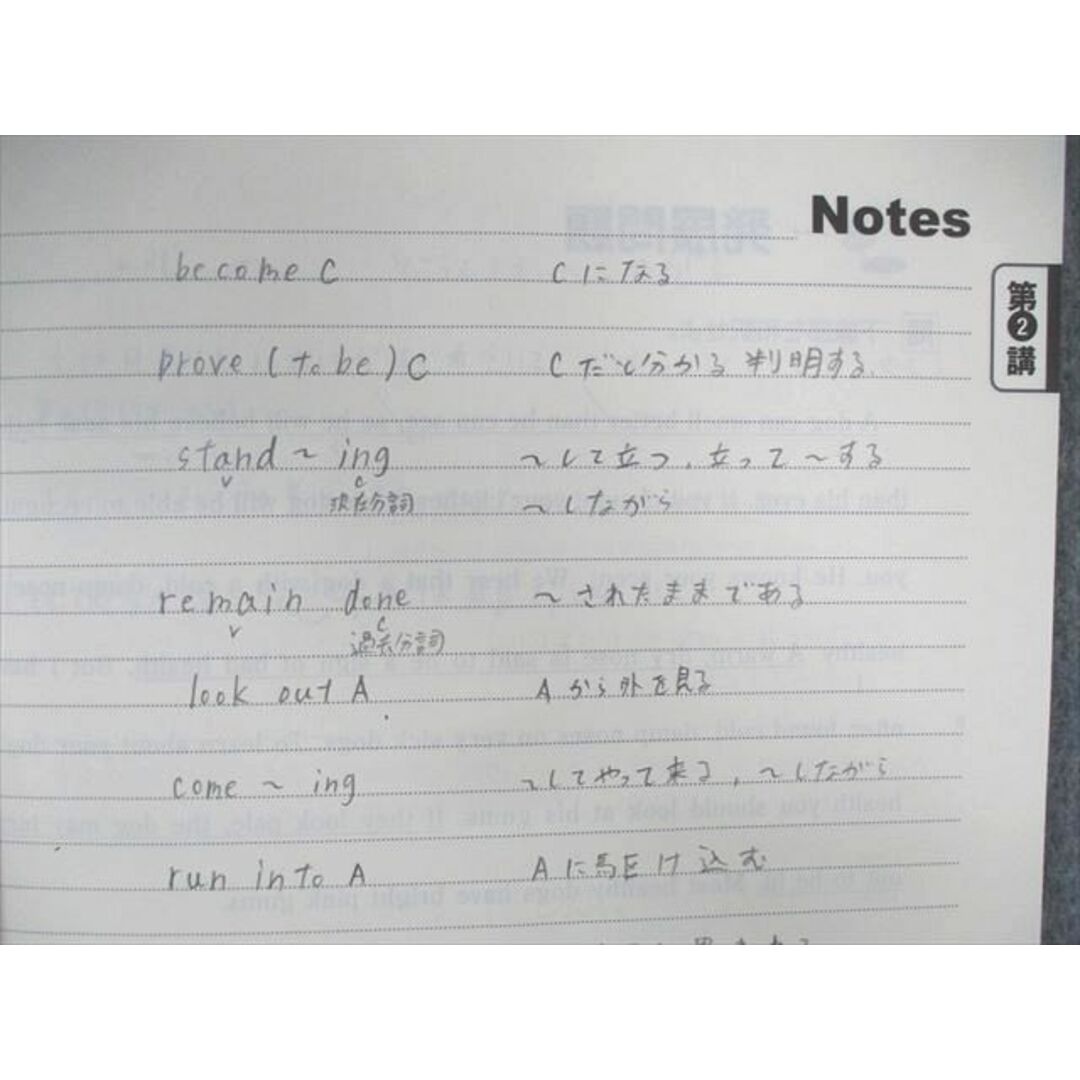 Notes
第2講
become C Cになる
prove (to be) C Cだと分かる 判明する
stand ~ ing ~して立つ、立って~する
V C
現在分詞 ~しながら
remain done ~されたままである
V C
過去分詞
look out A Aから外を見る
come ~ ing ~してやって来る, ~しながら
run into A Aに駆け込む